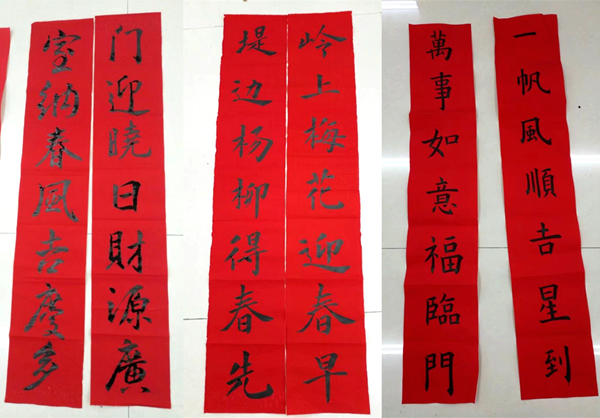 门迎晓日財源廣
室纳春風吉慶多
岭上梅花迎春早
堤边杨柳得春先
一帆風順吉星到
萬事如意福臨門